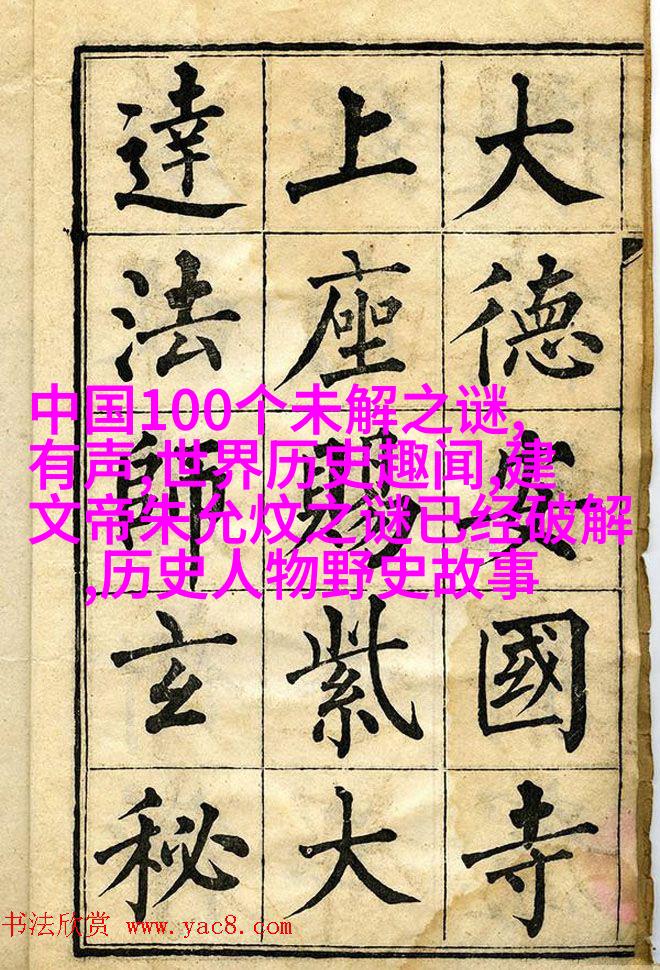 大德安國寺
上座賜紫大
達法師玄秘
中国100个未解之谜,
有声,世界历史趣闻,建
文帝朱允炆之谜已经破解
,历史人物野史故事
书法欣赏 www.yac8.com